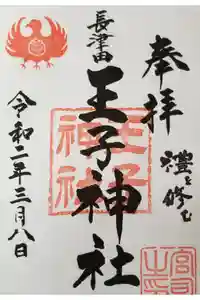 奉拝
禮を修む
長津田
王子神社
王子神社
令和二年三月八日
宮司之印